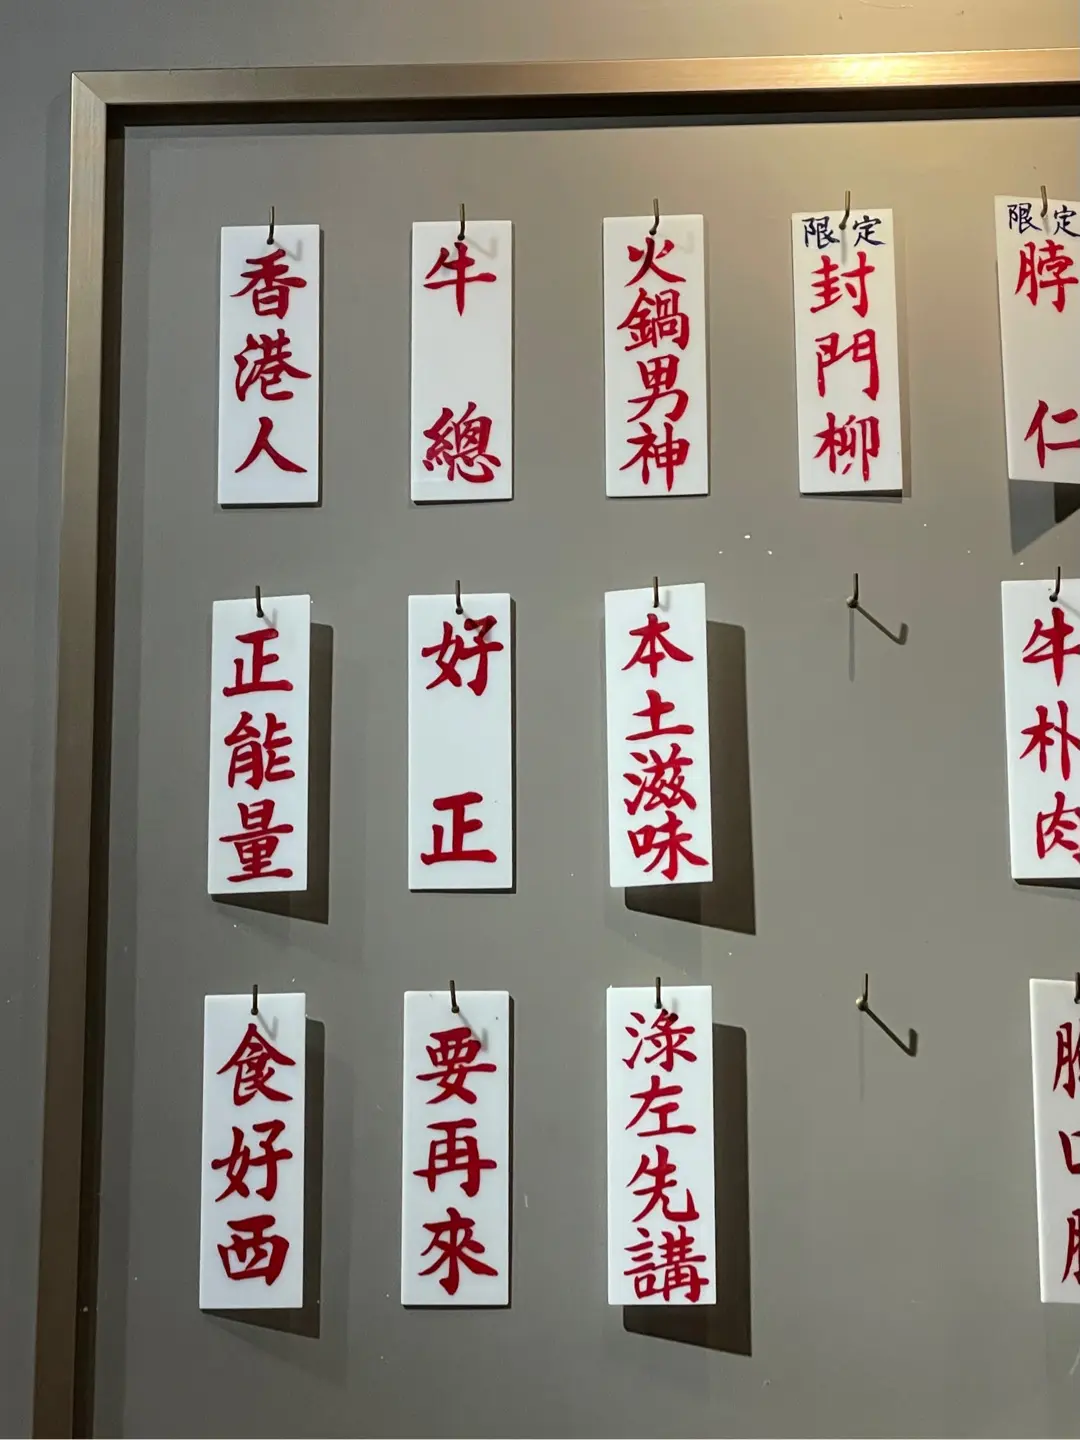 香港人
牛總
火鍋男神
限定
封門柳
限定
脖仁
正能量
好正
本土滋味
牛朴肉
食好西
要再來
淥左先講